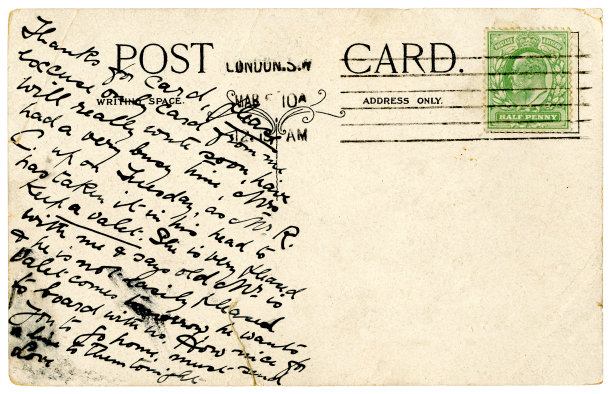 POST CARD.
WRITING SPACE.
ADDRESS ONLY.
LONDON.S.W
MAR 10A
AM
HALF PENNY
Thanks for card, please
excuse only card from me
will really write soon, have
had a very busy time, Mrs
C. up on Tuesday, as Mr. R.
has taken it in his head to
keep a valet. She is very pleased
with me & says old Mr. is
& he is not easily pleased
Valet comes tomorrow he wants
to board with us. How nice for
you to go home, must send
a line to them tonight
Love